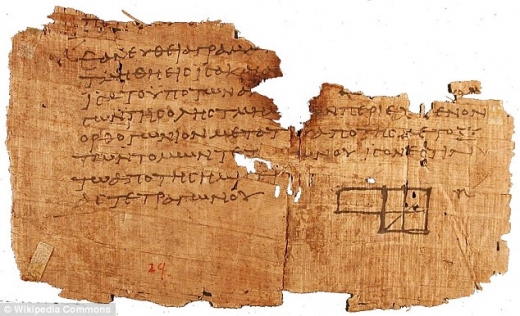 ΕΑΝ ΕΥΘΕΙΑ ΓΡΑΜ
ΤΜΗΘΗ ΕΙϹ ΙϹΑ Κ
ΙϹΑ ΤΟ ΥΠΟ ΤΩΝ
ϹΩΝ ΤΗϹ ΟΛΗϹ ΤΜ ΤΩΝ ΠΕΡΙΕΧΟΜΕΝΟΝ
ΟΡΘΟΓΩΝΙΟΝ ΜΕΤΑ ΤΟΥ ΑΠΟ ΤΗϹ ΜΕΤΟΞΥ
ΤΩΝ ΤΟΜΩΝ ΤΕΤ ΩΝΟΥ ΙϹΟΝ ΕϹΤΙΝ
ΤΩ ΑΠΟ ΤΗϹ ΗΜΙ
ΤΕΤΡΑΓΩΝΟΥ
24.
© Wikipedia Commons